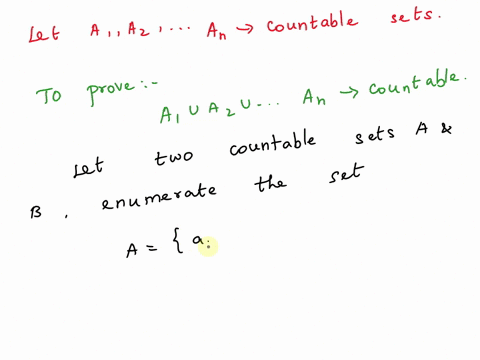 Let A₁, A₂, ... Aₙ → countable sets.
To prove :-
A₁ ∪ A₂ ∪ ... Aₙ → countable.
Let two countable sets A &
B, enumerate the set
A = { a: